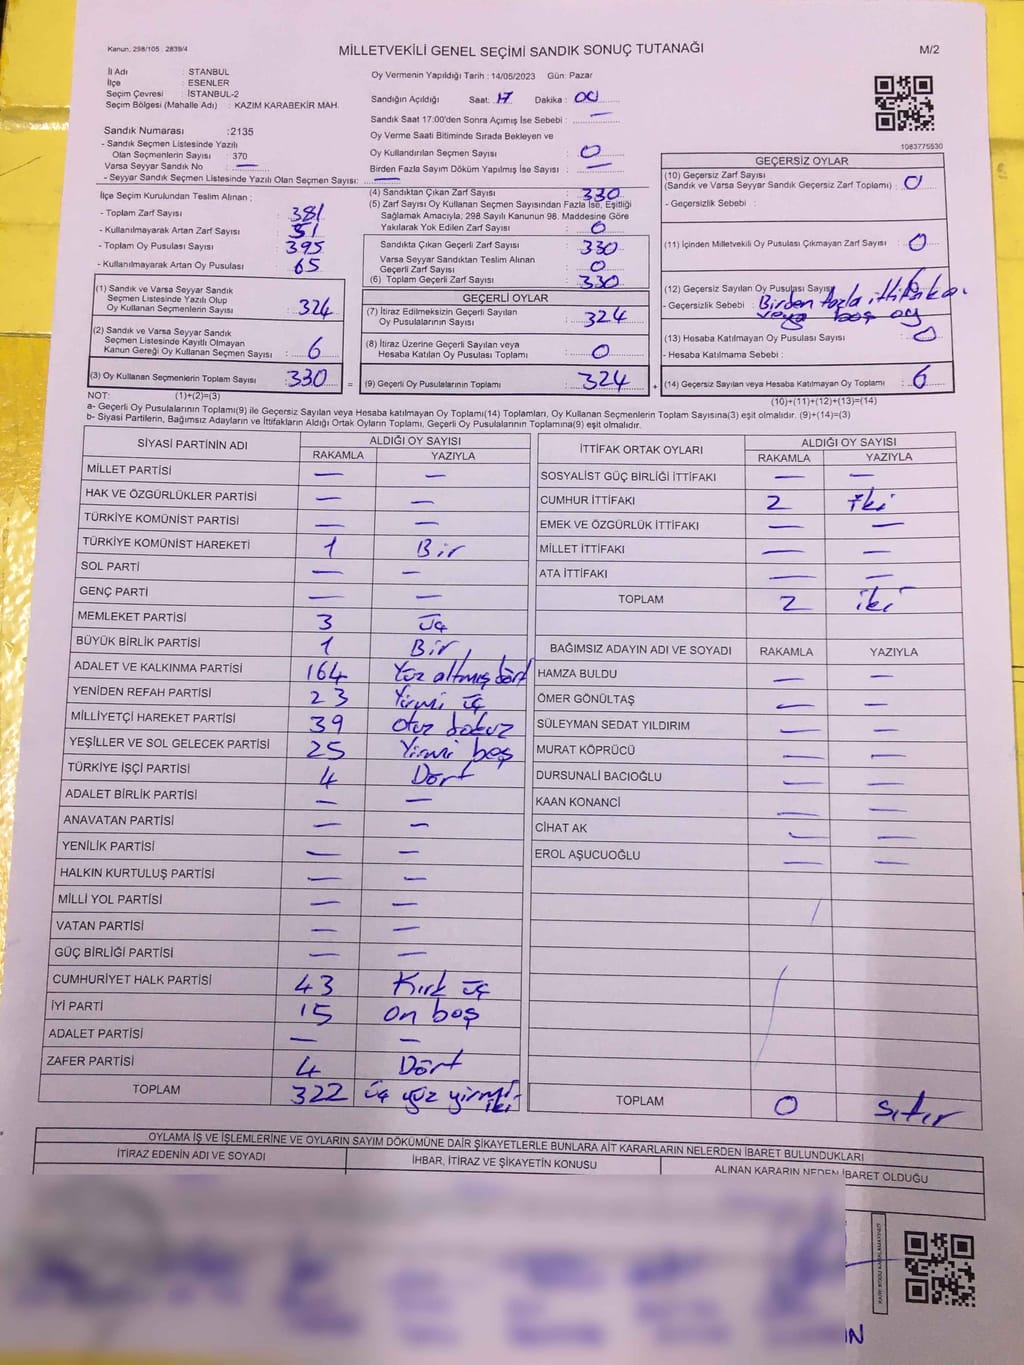 Kanun, 298/105 2839/4
MİLLETVEKİLİ GENEL SEÇİMİ SANDIK SONUÇ TUTANAĞI
M/2
İl Adı : STANBUL
İlçe : ESENLER
Seçim Çevresi : İSTANBUL-2
Seçim Bölgesi (Mahalle Adı) : KAZIM KARABEKİR MAH.
Sandık Numarası :2135
- Sandık Seçmen Listesinde Yazılı
Olan Seçmenlerin Sayısı : 370
Varsa Seyyar Sandık No —
- Seyyar Sandık Seçmen Listesinde Yazılı Olan Seçmen Sayısı: —
Oy Vermenin Yapıldığı Tarih : 14/05/2023 Gün: Pazar
Sandığın Açıldığı Saat: 17 Dakika : 00
Sandık Saat 17:00'den Sonra Açımış İse Sebebi : —
Oy Verme Saati Bitiminde Sırada Bekleyen ve
Oy Kullandırılan Seçmen Sayısı : 0
Birden Fazla Sayım Döküm Yapılmış İse Sayısı : —
1083775530
İlçe Seçim Kurulundan Teslim Alınan ;
- Toplam Zarf Sayısı : 381
- Kullanılmayarak Artan Zarf Sayısı : 51
- Toplam Oy Pusulası Sayısı : 395
- Kullanılmayarak Artan Oy Pusulası : 65
(1) Sandık ve Varsa Seyyar Sandık
Seçmen Listesinde Yazılı Olup
Oy Kullanan Seçmenlerin Sayısı : 324
(2) Sandık ve Varsa Seyyar Sandık
Seçmen Listesinde Kayıtlı Olmayan
Kanun Gereği Oy Kullanan Seçmen Sayısı : 6
(3) Oy Kullanan Seçmenlerin Toplam Sayısı : 330
(4) Sandıktan Çıkan Zarf Sayısı : 330
(5) Zarf Sayısı Oy Kullanan Seçmen Sayısından Fazla İse, Eşitliği
Sağlamak Amacıyla, 298 Sayılı Kanunun 98. Maddesine Göre
Yakılarak Yok Edilen Zarf Sayısı : 0
Sandıkta Çıkan Geçerli Zarf Sayısı : 330
Varsa Seyyar Sandıktan Teslim Alınan
Geçerli Zarf Sayısı : 0
(6) Toplam Geçerli Zarf Sayısı : 330
GEÇERLİ OYLAR
(7) İtiraz Edilmeksizin Geçerli Sayılan
Oy Pusulalarının Sayısı : 324
(8) İtiraz Üzerine Geçerli Sayılan veya
Hesaba Katılan Oy Pusulası Toplamı : 0
= (9) Geçerli Oy Pusulalarının Toplamı : 324 +
GEÇERSİZ OYLAR
(10) Geçersiz Zarf Sayısı
(Sandık ve Varsa Seyyar Sandık Geçersiz Zarf Toplamı) : 0
- Geçersizlik Sebebi :
(11) İçinden Milletvekili Oy Pusulası Çıkmayan Zarf Sayısı : 0
(12) Geçersiz Sayılan Oy Pusulası Sayısı
- Geçersizlik Sebebi : Birden fazla ittifaka.
veya boş oy
(13) Hesaba Katılmayan Oy Pusulası Sayısı : 0
- Hesaba Katılmama Sebebi :
(14) Geçersiz Sayılan veya Hesaba Katılmayan Oy Toplamı : 6
NOT: (1)+(2)=(3)
(10)+(11)+(12)+(13)=(14)
a- Geçerli Oy Pusulalarının Toplamı(9) ile Geçersiz Sayılan veya Hesaba katılmayan Oy Toplamı(14) Toplamları, Oy Kullanan Seçmenlerin Toplam Sayısına(3) eşit olmalıdır. (9)+(14)=(3)
b- Siyasi Partilerin, Bağımsız Adayların ve İttifakların Aldığı Ortak Oyların Toplamı, Geçerli Oy Pusulalarının Toplamına(9) eşit olmalıdır.
SİYASİ PARTİNİN ADI ALDIĞI OY SAYISI
RAKAMLA YAZIYLA
MİLLET PARTİSİ — —
HAK VE ÖZGÜRLÜKLER PARTİSİ — —
TÜRKİYE KOMÜNİST PARTİSİ — —
TÜRKİYE KOMÜNİST HAREKETİ 1 Bir
SOL PARTİ — —
GENÇ PARTİ — —
MEMLEKET PARTİSİ 3 üç
BÜYÜK BİRLİK PARTİSİ 1 Bir
ADALET VE KALKINMA PARTİSİ 164 Yüz altmış dört
YENİDEN REFAH PARTİSİ 23 Yirmi üç
MİLLİYETÇİ HAREKET PARTİSİ 39 otuz dokuz
YEŞİLLER VE SOL GELECEK PARTİSİ 25 Yirmi beş
TÜRKİYE İŞÇİ PARTİSİ 4 Dört
ADALET BİRLİK PARTİSİ — —
ANAVATAN PARTİSİ — —
YENİLİK PARTİSİ — —
HALKIN KURTULUŞ PARTİSİ — —
MİLLİ YOL PARTİSİ — —
VATAN PARTİSİ — —
GÜÇ BİRLİĞİ PARTİSİ — —
CUMHURİYET HALK PARTİSİ 43 Kırk üç
İYİ PARTİ 15 on beş
ADALET PARTİSİ — —
ZAFER PARTİSİ 4 Dört
TOPLAM 322 üç yüz yirmi iki
İTTİFAK ORTAK OYLARI ALDIĞI OY SAYISI
RAKAMLA YAZIYLA
SOSYALİST GÜÇ BİRLİĞİ İTTİFAKI — —
CUMHUR İTTİFAKI 2 iki
EMEK VE ÖZGÜRLÜK İTTİFAKI — —
MİLLET İTTİFAKI — —
ATA İTTİFAKI — —
TOPLAM 2 iki
BAĞIMSIZ ADAYIN ADI VE SOYADI RAKAMLA YAZIYLA
HAMZA BULDU — —
ÖMER GÖNÜLTAŞ — —
SÜLEYMAN SEDAT YILDIRIM — —
MURAT KÖPRÜCÜ — —
DURSUNALİ BACIOĞLU — —
KAAN KONANCİ — —
CİHAT AK — —
EROL AŞUCUOĞLU — —
TOPLAM 0 sıfır
OYLAMA İŞ VE İŞLEMLERİNE VE OYLARIN SAYIM DÖKÜMÜNE DAİR ŞİKAYETLERLE BUNLARA AİT KARARLARIN NELERDEN İBARET BULUNDUKLARI
İTİRAZ EDENİN ADI VE SOYADI İHBAR, İTİRAZ VE ŞİKAYETİN KONUSU ALINAN KARARIN NEDEN İBARET OLDUĞU